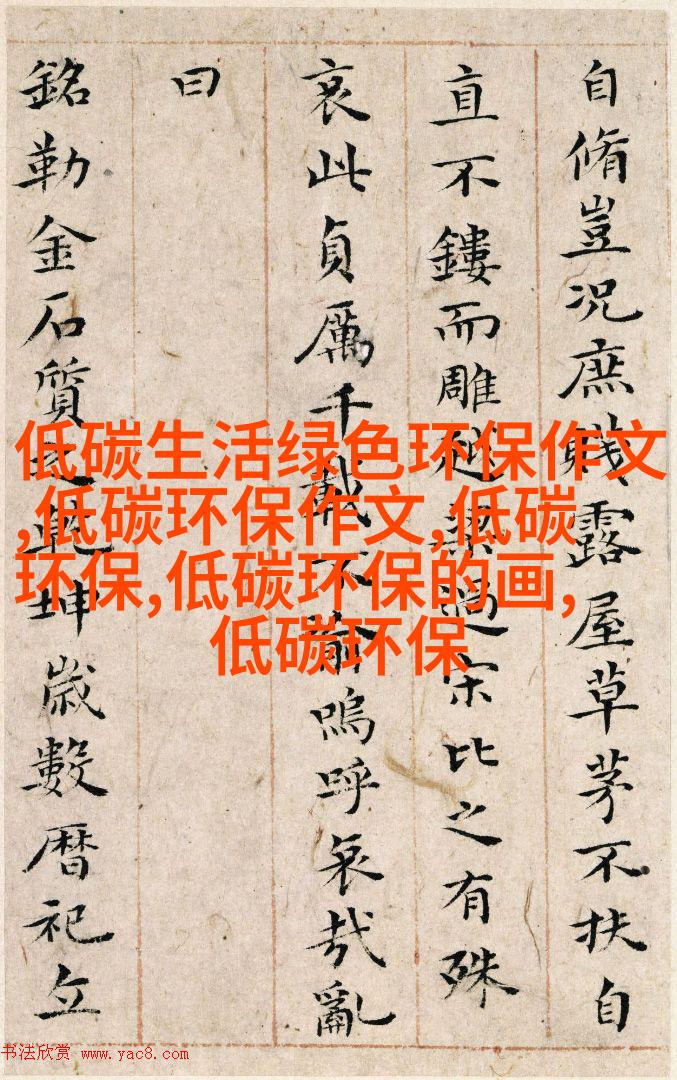 自脩豈況庶賤露屋草茅不扶自
直不鏤而雕越梁過宋比之有殊
哀此貞厲千載不渝嗚呼哀哉亂
曰
銘勒金石質之乾坤歲數暦祀立
低碳生活绿色环保作文
,低碳环保作文,低碳
环保,低碳环保的画,
低碳环保
书法欣赏 www.yac8.com